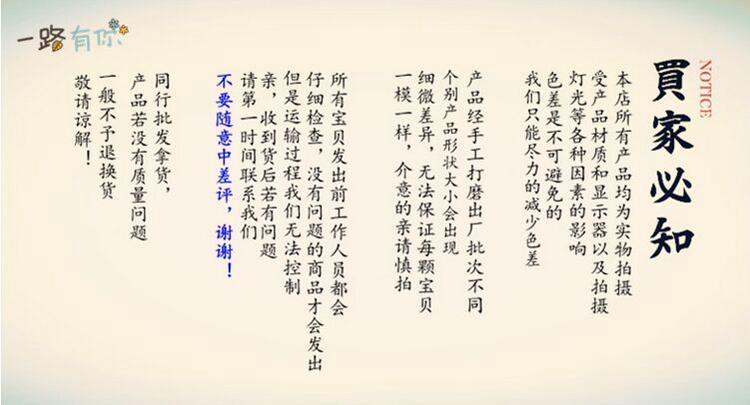 一路有你
買家必知
NOTICE
本店所有产品均为实物拍摄
受产品材质和显示器以及拍摄
灯光等各种因素的影响
色差是不可避免的
我们只能尽力的减少色差
产品经手工打磨出厂批次不同
个别产品形状大小会出现
细微差异，无法保证每颗宝贝
一模一样，介意的亲请慎拍
所有宝贝发出前工作人员都会
仔细检查，没有问题的商品才会发出
但是运输过程我们无法控制
亲，收到货后若有问题
请第一时间联系我们
不要随意中差评，谢谢！
同行批发拿货，
产品若没有质量问题
一般不予退换货
敬请谅解！